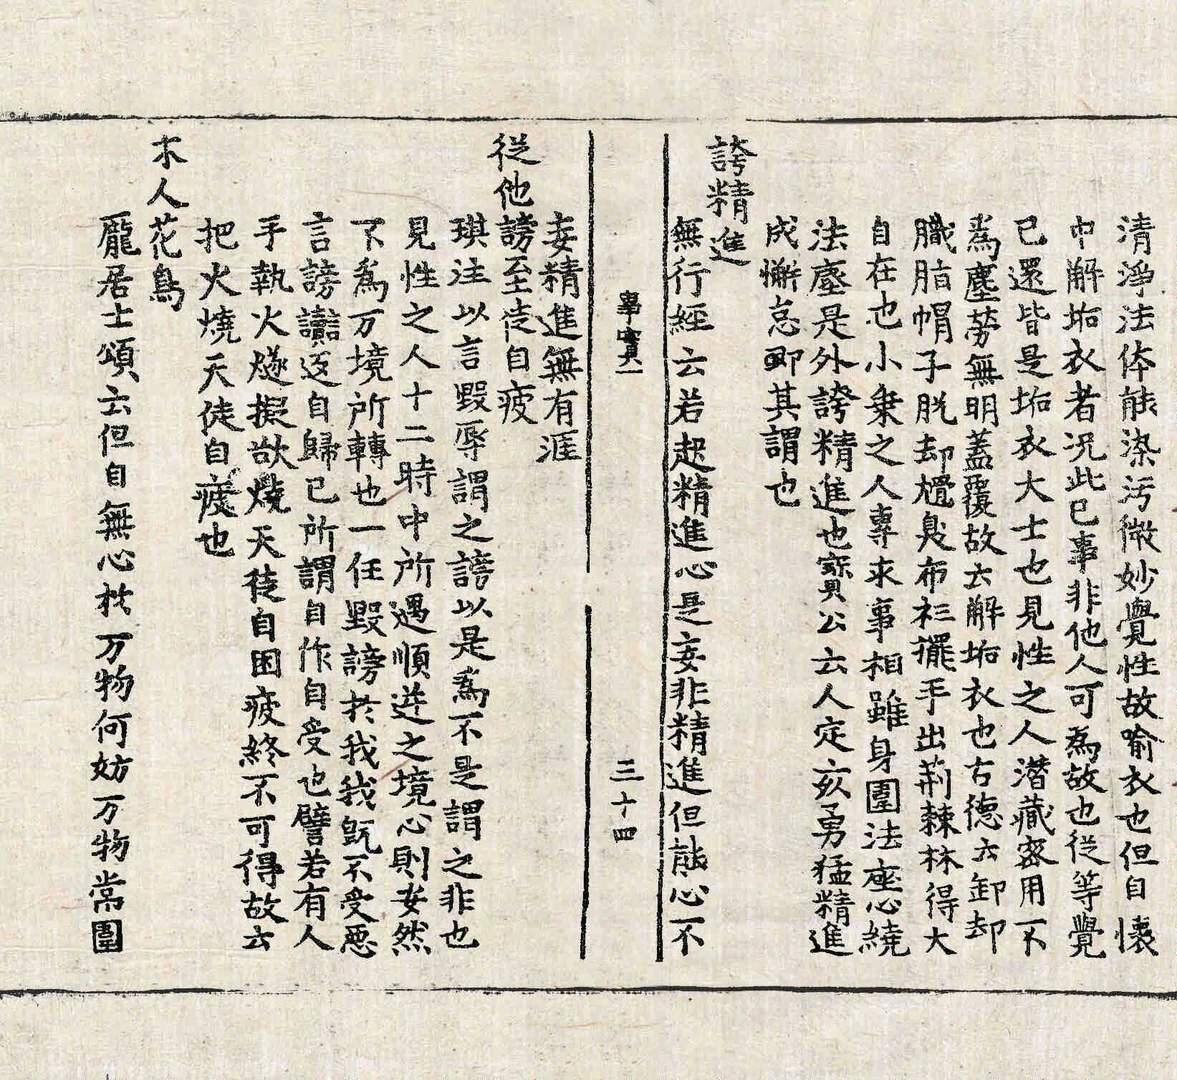 清淨法体能染汚微妙覺性故喻衣也但自懷
中解垢衣者况此已事非他人可為故也従等覺
已還皆是垢衣大士也見性之人潜藏密用不
為塵勞無明蓋覆故云解垢衣也古德云卸却
膱脂帽子脱却㩉臭布衫擺手出荊棘林得大
自在也小乗之人專求事相雖身圍法座心繞
法塵是外誇精進也寳公云人定亥勇猛精進
成懈怠即其謂也
誇精進
無行經云若起精進心是妄非精進但能心不
事實一
三十四
妄精進無有涯
従他謗至徒自疲
琪注以言毀辱謂之謗以是為不是謂之非也
見性之人十二時中所遇順逆之境心則安然
不為万境所轉也一任毀謗扵我我既不受惡
言謗讟返自歸已所謂自作自受也譬若有人
手執火燧擬欲燒天徒自困疲終不可得故云
把火燒天徒自疲也
木人花鳥
龐居士頌云但自無心扵万物何妨万物常圍